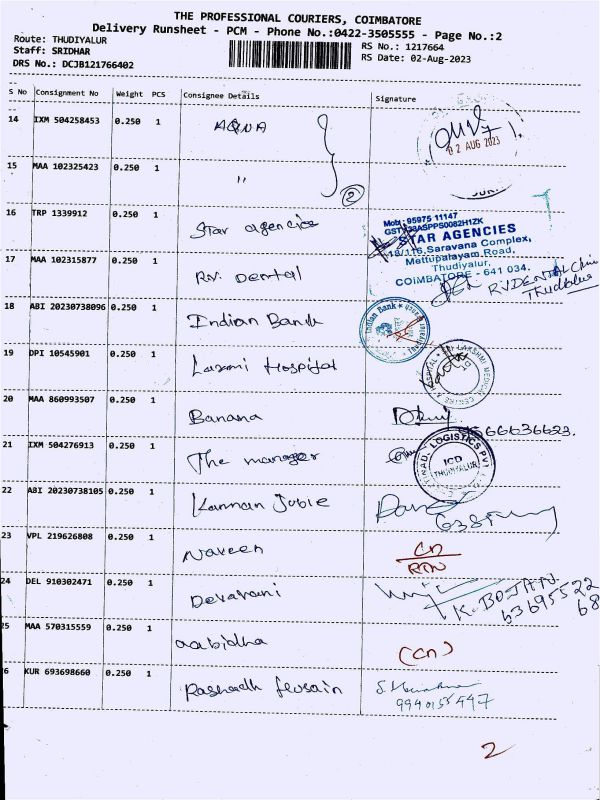 THE PROFESSIONAL COURIERS, COIMBATORE
Delivery Runsheet - PCM - Phone No.:0422-3505555 - Page No.:2
Route: THUDIYALUR
Staff: SRIDHAR
DRS No.: DCJB121766402
RS No.: 1217664
RS Date: 02-Aug-2023
S No Consignment No Weight PCS Consignee Details Signature
14 IXM 504258453 0.250 1 AQUA
02 AUG 2023
15 MAA 102325423 0.250 1 "
2
16 TRP 1339912 0.250 1 Star agencies
Mob: 95975 11147
STAR AGENCIES
18/116, Saravana Complex,
Mettupalayam Road,
Thudiyalur,
COIMBATORE - 641 034.
17 MAA 102315877 0.250 1 RV. Dental
RVDENTAL Clinic
Thudialur
18 ABI 20230738096 0.250 1 Indian Bank
Indian Bank
19 DPI 10545901 0.250 1 Laxmi Hospital
SRI LAKSHMI MEDICAL CENTRE & HOSPITAL
20 MAA 860993507 0.250 1 Banana
21 IXM 504276913 0.250 1 The manager
LOGISTICS PVT
ICD
THUDIYALUR
22 ABI 20230738105 0.250 1 Kannan Jubie
23 VPL 219626808 0.250 1 Naveen
CN
RTN
24 DEL 910302471 0.250 1 Devarani
K. BOJAN
63695522
68
25 MAA 570315559 0.250 1 aabidha
(CN)
6 KUR 693698660 0.250 1 Rashadh Hussain
9940155447
2